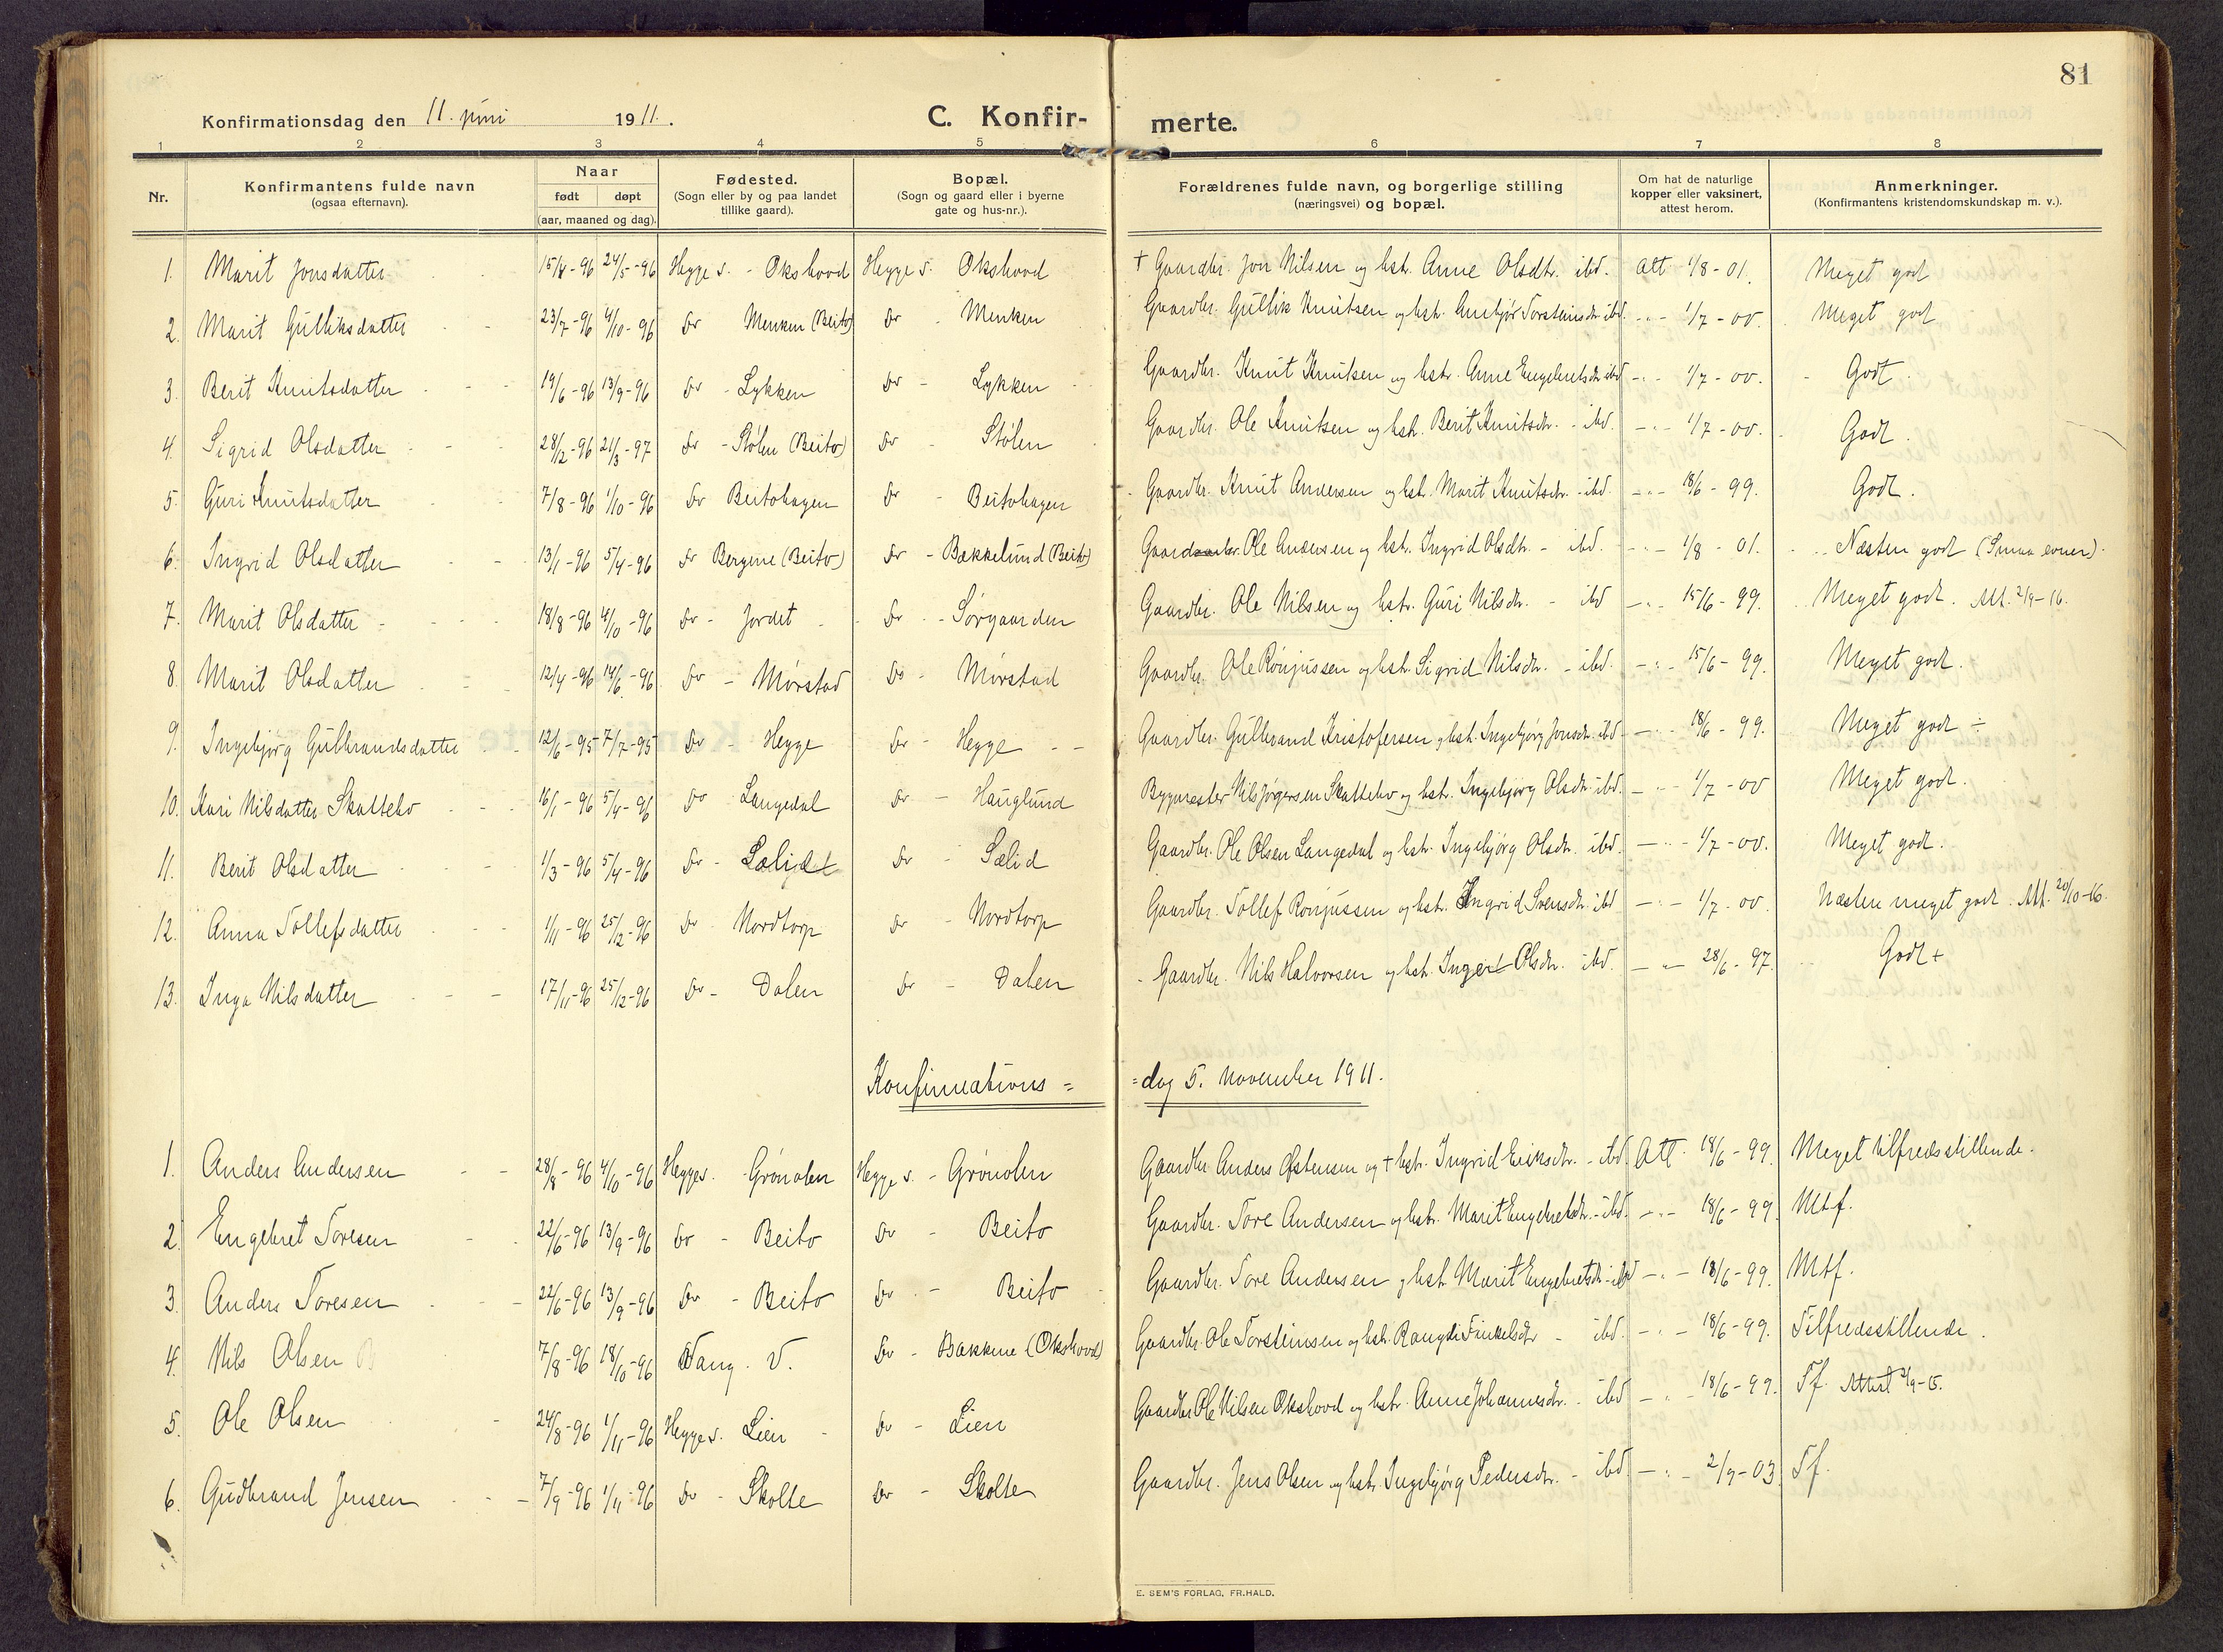 81
Konfirmationsdag den 11. juni 1911.
C. Konfir-
merte.
1 2 3 4 5 6 7 8
Nr.
Konfirmantens fulde navn
(ogsaa efternavn).
Naar
født døpt
(aar, maaned og dag).
Fødested.
(Sogn eller by og paa landet
tillike gaard).
Bopæl.
(Sogn og gaard eller i byerne
gate og hus-nr.).
Forældrenes fulde navn, og borgerlige stilling
(næringsvei) og bopæl.
Om hat de naturlige
kopper eller vaksinert,
attest herom.
Anmerkninger.
(Konfirmantens kristendomskundskap m. v.).
1. Marit Jonsdatter 15/4-96 24/5-96 Hegge s. - Okshovd Hegge s. Okshovd + Gaardbr. Jon Nilsen og hst. Anne Olsdtr. ibd. Att 1/8-01. Meget godt
2. Marit Gulliksdatter 23/7-96 4/10-96 Do Menken (Beito) Do - Menken Gaardbr. Gullik Knutsen og hst. Anbjør Torsteinsdtr ibd. -"- 1/7-00. Meget godt
3. Berit Knutsdatter 19/6-96 13/9-96 Do - Lykken Do - Lykken Gaardbr. Knut Knutsen og hst. Anne Engebretsdtr ibd -"- 1/7-00. Godt.
4. Sigrid Olsdatter 28/12-96 21/3-97 Do - Stølen (Beito) Do - Stølen Gaardbr. Ole Knutsen og hst. Berit Knutsdtr. - ibd. -"- 1/7-00. Godt.
5. Guri Knutsdatter 7/8-96 1/10-96 Do Beitohagen Do - Beitohagen Gaardbr. Knut Andersen og hst. Marit Knutsdtr. - ibd. -"- 18/6-99. Godt.
6. Ingrid Olsdatter 13/1-96 5/4-96 Do Bergene (Beito) Do - Bakkelund (Beito) Gaardbr. Ole Andersen og hst. Ingrid Olsdtr. - ibd. -"- 1/8-01. Næsten godt (Smaa evner).
7. Marit Olsdatter 18/8-96 4/10-96 Do - Jordet Do - Sørgaarden Gaardbr. Ole Nilsen og hst. Guri Nilsdtr. - ibd -"- 15/6-99. Meget godt. Att. 2/9-16.
8. Marit Olsdatter 12/4-96 14/6-96 Do - Mørstad Do - Mørstad Gaardbr. Ole Rønjussen og hst. Sigrid Nilsdtr. - ibd. -"- 15/6-99. Meget godt.
9. Ingebjørg Gulbrandsdatter 12/6-95 7/7-95 Do - Hegge Do - Hegge Gaardbr. Gulbrand Kristofersen og hst. Ingebjørg Jonsdtr. ibd -"- 18/6-99. Meget godt ÷
10. Kari Nilsdatter Skattebo 16/1-96 5/4-96 Do Langedal Do - Hauglund Bygmester Nils Jørgensen Skattebo og hst. Ingebjørg Olsdtr. ibd. -"- 1/7-00 Meget godt.
11. Berit Olsdatter 1/3-96 5/4-96 Do - Sælid Do - Sælid Gaardbr. Ole Olsen Langedal og hst. Ingebjørg Olsdtr. ibd. -"- 1/7-00. Meget godt.
12. Anna Tollefsdatter 1/11-96 25/12-96 Do - Nordtorp Do - Nordtorp Gaardbr. Tollef Rønjussen og hst. Ingrid Svensdtr. ibd -"- 1/7-00. Næsten meget godt. Att. 20/10-16.
13. Inga Nilsdatter 17/11-96 25/12-96 Do - Dalen Do - Dalen Gaardbr. Nils Halvorsen og hst. Ingert Olsdtr. ibd. -"- 28/6-97. Godt +
Konfirmations= =dag 5. November 1911.
1. Anders Andersen 28/8-96 4/10-96 Hegge s. - Grønolen Hegge s. - Grønolen Gaardbr. Anders Østensen og + hst. Ingrid Eriksdtr. - ibd. Att. 18/6-99. Meget tilfredsstillende.
2. Engebret Toresen 22/6-96 13/9-96 Do - Beito Do - Beito Gaardbr. Tore Andersen og hst. Marit Engebretsdtr. - ibd. -"- 18/6-99. Mtf.
3. Anders Toresen 22/6-96 13/9-96 Do - Beito Do - Beito Gaardbr. Tore Andersen og hst. Marit Engebretsdtr - ibd -"- 18/6-99. Mtf.
4. Nils Olsen 7/8-96 18/10-96 Vang. V. Do - Bakkene (Okshovd) Gaardbr. Ole Torsteinsen og hst. Rangdi Finkelsdtr - ibd. -"- 18/6-99. Tilfredsstillende.
5. Ole Olsen 24/8-96 1/11-96 Hegge s. Lien Do - Lien Gaardbr. Ole Nilsen Okshovd og hst. Anne Johannesdtr. - ibd -"- 18/6-99. Tf. Attest 2/9-15.
6. Gudbrand Jensen 7/9-96 1/11-96 Do - Skolte Do - Skolte Gaardbr. Jens Olsen og hst. Ingebjørg Pedersdtr. - ibd. -"- 2/9-03 Tf.
E. SEM'S FORLAG, FR.HALD.